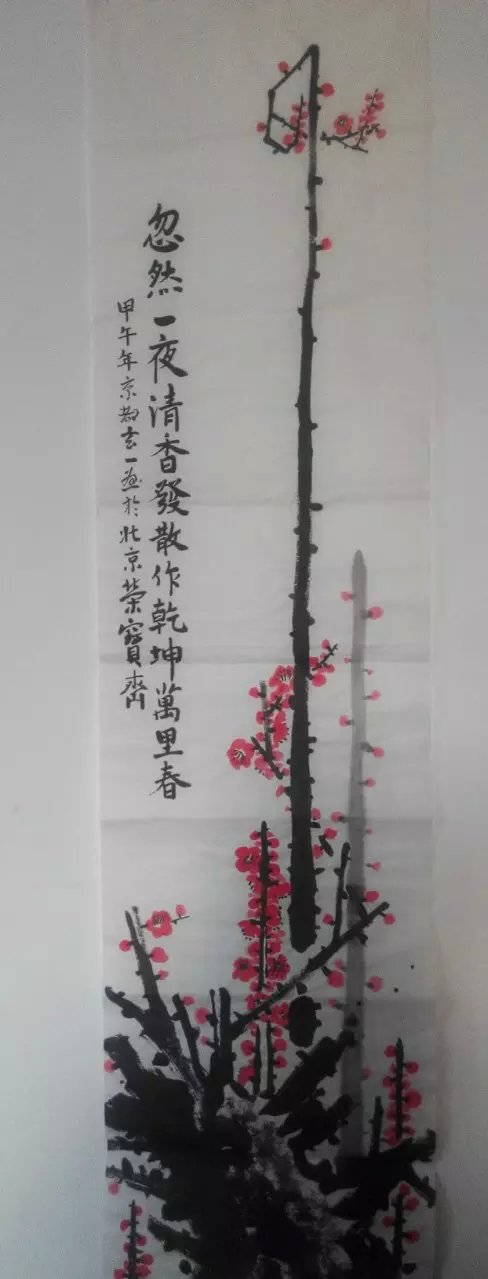 忽然一夜清香發散作乾坤萬里春
甲午年京都玄一画於北京榮寶齋